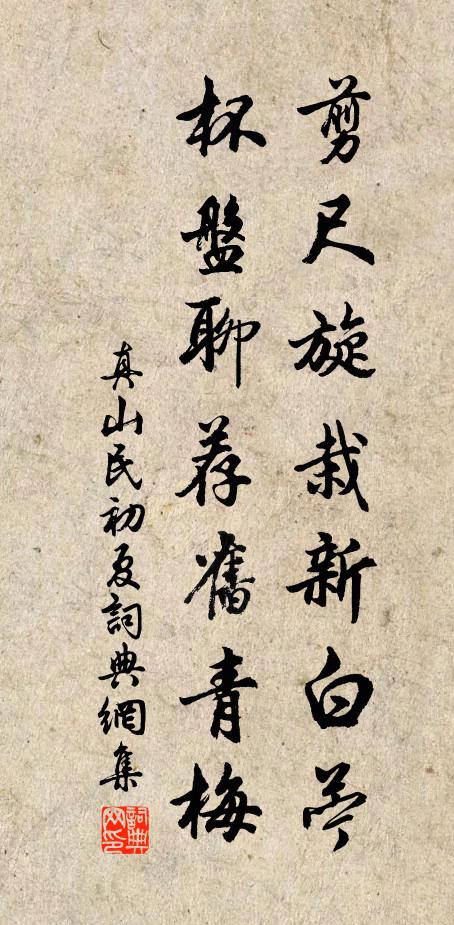 剪尺旋栽新白苎
杯盤聊荐舊青梅
真山民初夏詞典網集
詞典网印